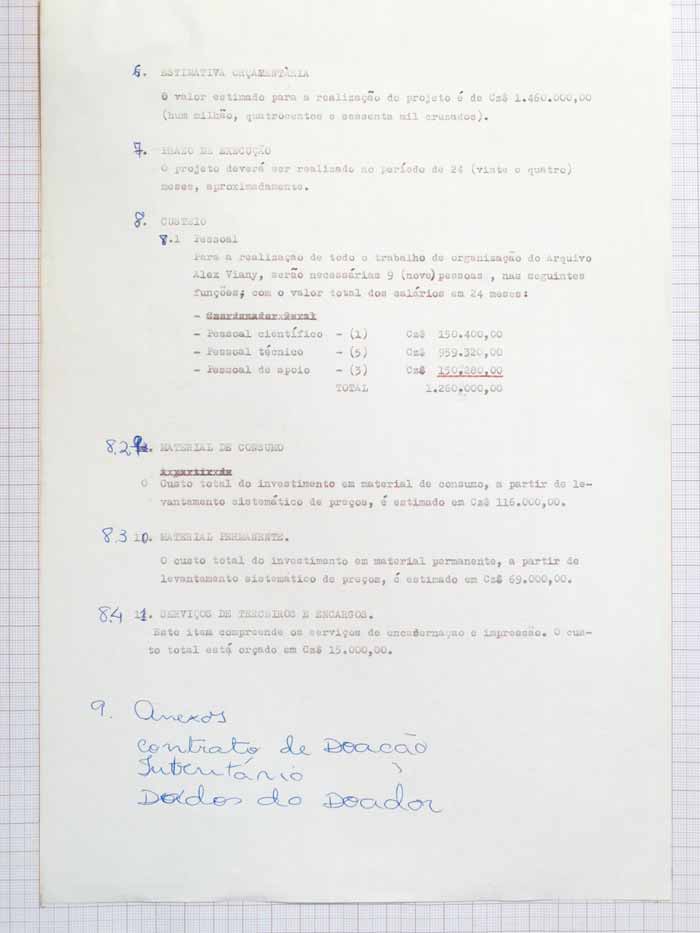 6. ESTIMATIVA ORÇAMENTÁRIA
O valor estimado para a realização do projeto é de Cz$ 1.460.000,00
(hum milhão, quatrocentos e sessenta mil cruzados).
7. PRAZO DE EXECUÇÃO
O projeto deverá ser realizado no período de 24 (vinte e quatro)
meses, aproximadamente.
8. CUSTEIO
8.1 Pessoal
Para a realização de todo o trabalho de organização do Arquivo
Alex Viany, serão necessárias 9 (nove) pessoas , nas seguintes
funções, com o valor total dos salários em 24 meses:
- Coordenador Geral
- Pessoal científico - (1) Cz$ 150.400,00
- Pessoal técnico - (5) Cz$ 959.320,00
- Pessoal de apoio - (3) Cz$ 150.280,00
TOTAL 1.260.000,00
8.2 MATERIAL DE CONSUMO
A partir de
O Custo total do investimento em material de consumo, a partir de le-
vantamento sistemático de preços, é estimado em Cz$ 116.000,00.
8.3 10. MATERIAL PERMANENTE.
O custo total do investimento em material permanente, a partir de
levantamento sistemático de preços, é estimado em Cz$ 69.000,00.
8.4 11. SERVIÇOS DE TERCEIROS E ENCARGOS.
Este item compreende os serviços de encadernação e impressão. O cus-
to total está orçado em Cz$ 15.000,00.
9. Anexos
Contrato de Doação
Inventário
Dados do Doador